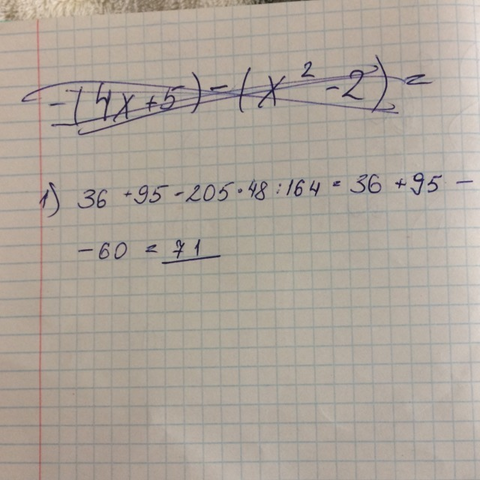 -(4x+5)-(x²-2)=
1) 36 +95 -205·48:164 = 36 +95 -
-60 = 71